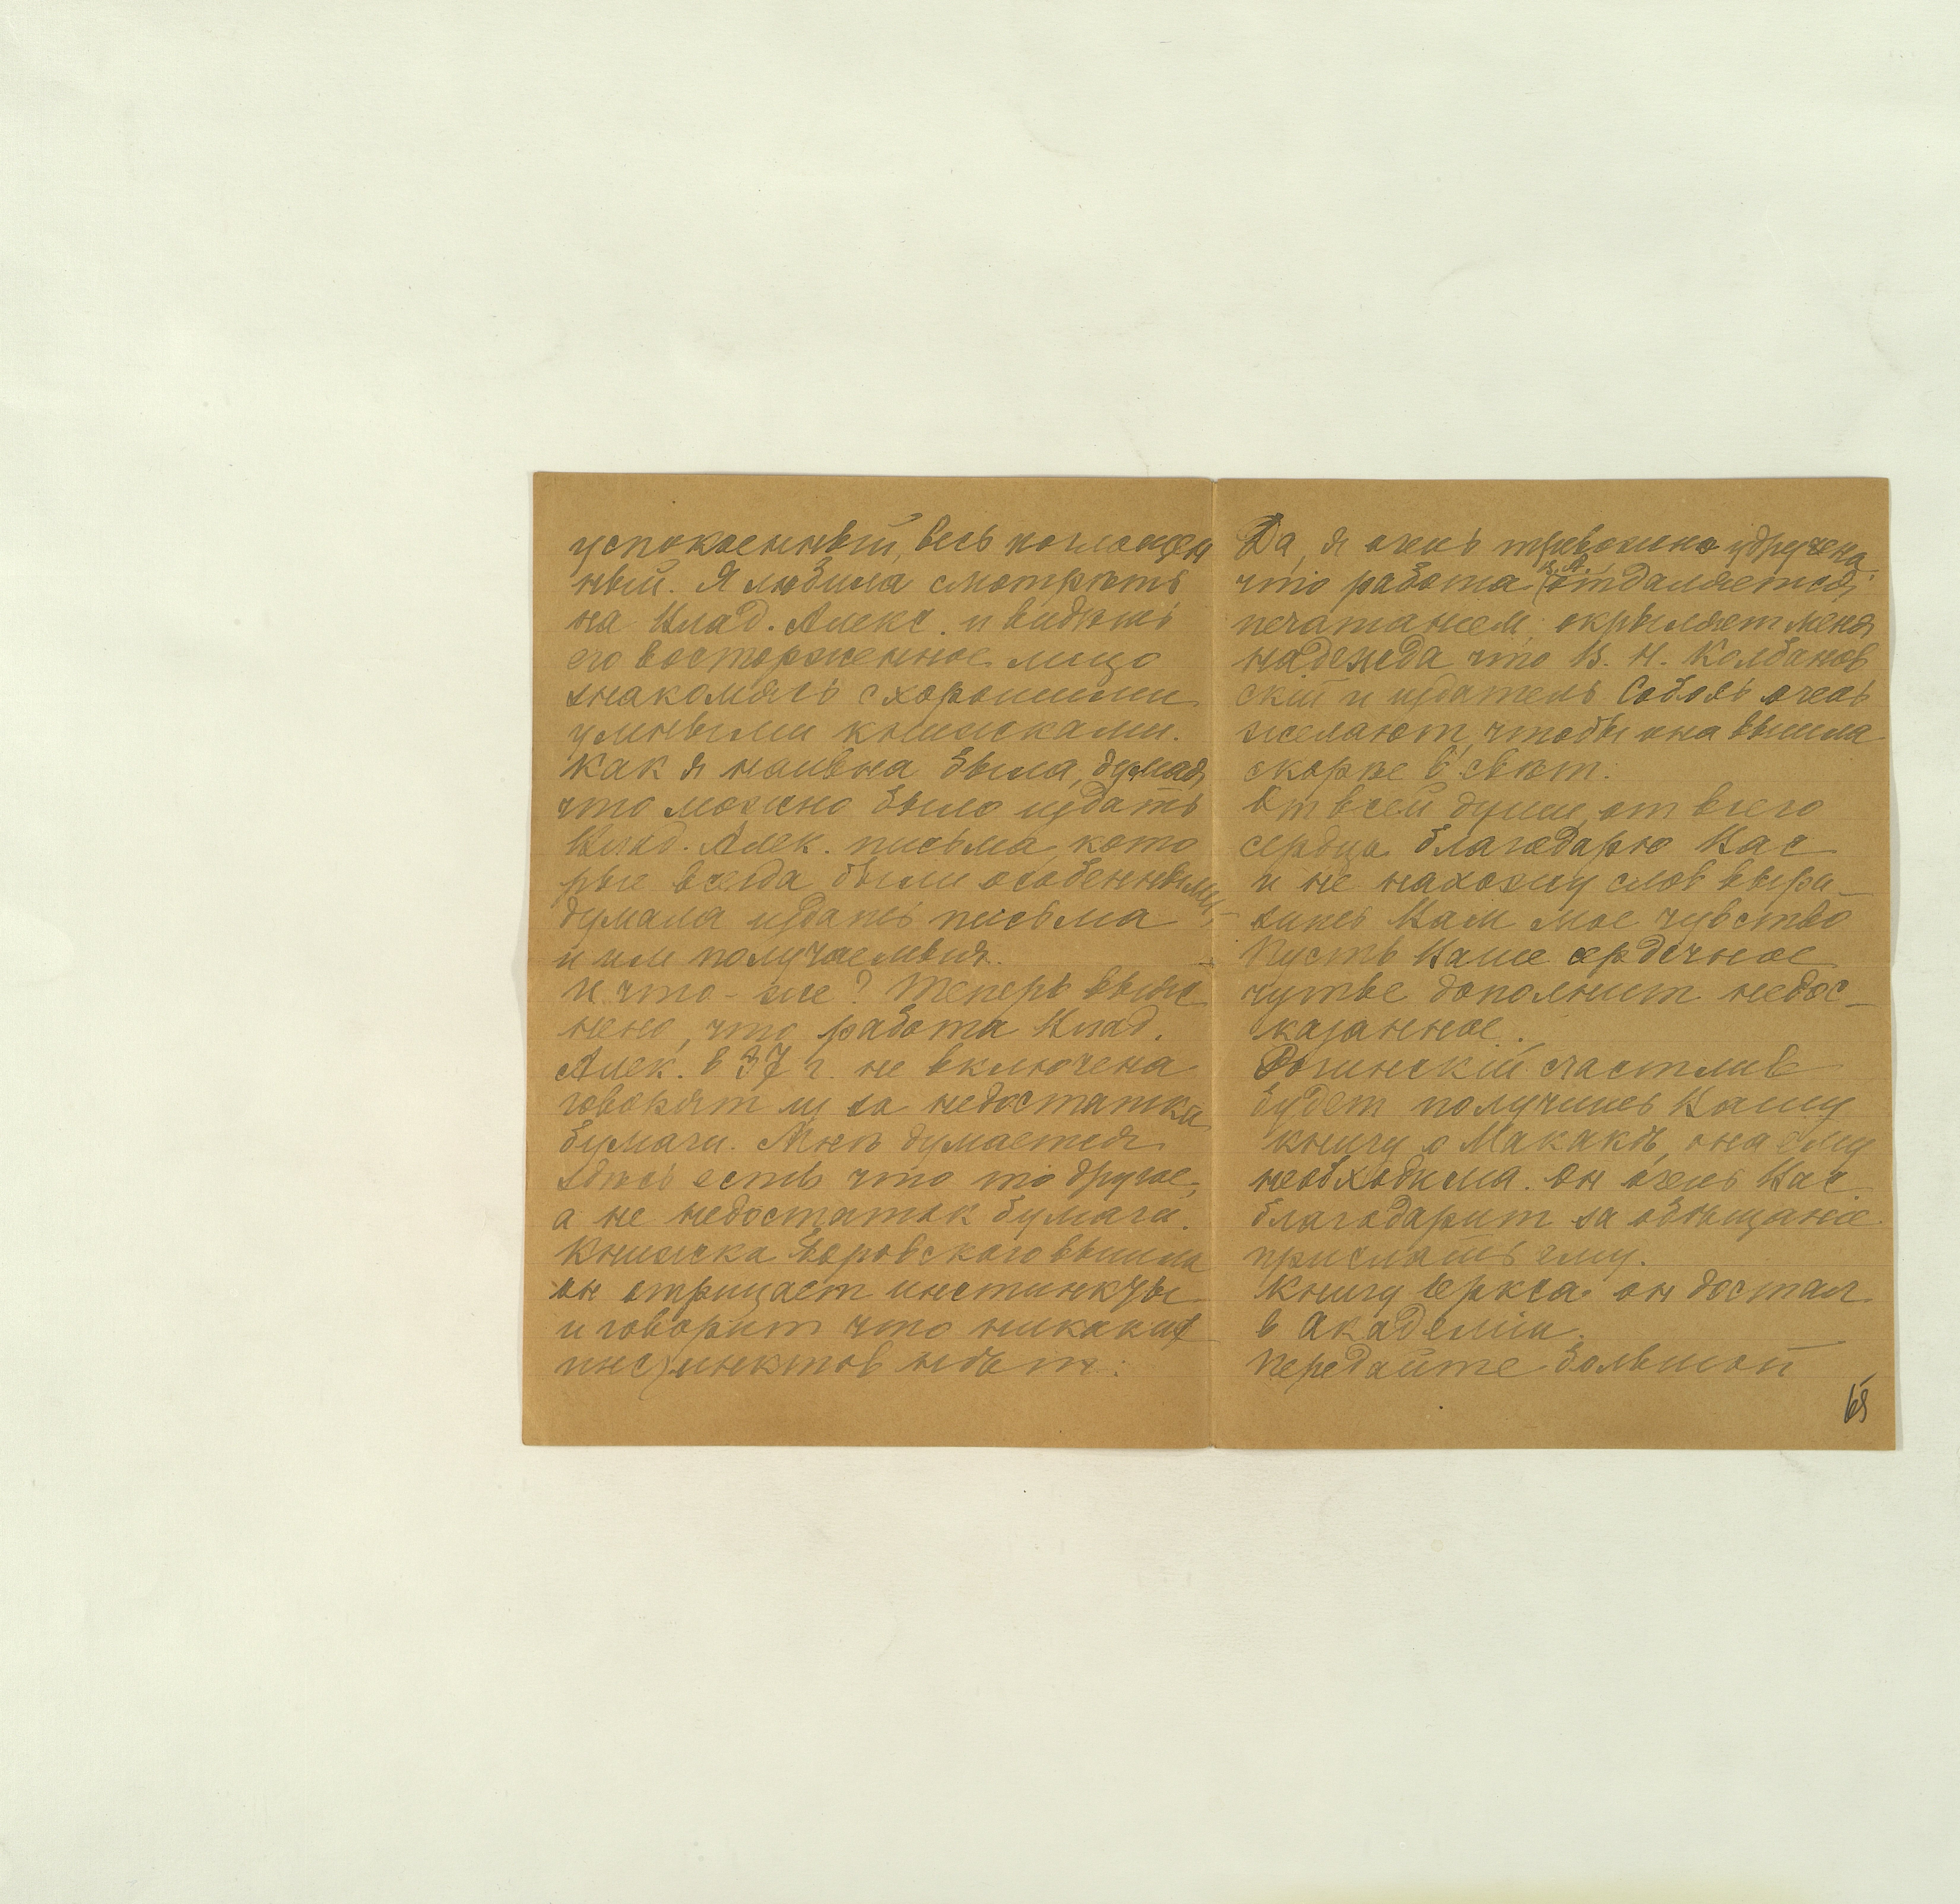 успокоенный, весь поглощен
ный. Я любила смотрѣть
на Влад. Алекс. и видѣть
его восторженное лицо
знакомясь с хорошими
умными книжками.
Как я наивна была, думая,
что можно было издать
Влад. Алек. письма, кото
рые всегда были особенными,
думала издать письма
и им получаемыя.
И что-же? Теперь выяс
нено, что работа Влад.
Алек. в 37 г. не включена
говорят из за недостатка
бумаги. Мнѣ думается
здѣсь есть что то другое,
а не недостаток бумаги.
Книжка Боровского вышла
он отрицает инстинкты
и говорит что никаких
инстинктов нѣт.
Да, я очень тревожно удручена
что работа В. А. отдаляется
печатанием, окрыляет меня
надежда что В. Н. Колбанов
скій и издатель Соболь очень
желают, чтобы она вышла
скорѣе в свѣт.
От всей души, от всего
сердца благодарю Вас
и не нахожу слов выра-
зить Вам мое чувство
Пусть Ваше сердечное
чутье дополнит недос-
казанное.
Рогинскій счастлив
будет получить Вашу
книгу о Макакѣ, она ему
необходима. Он очень Вас
благодарит за обѣщание
прислать ему.
Книгу Іеркса он достал
в Академіи.
Передайте большой
65